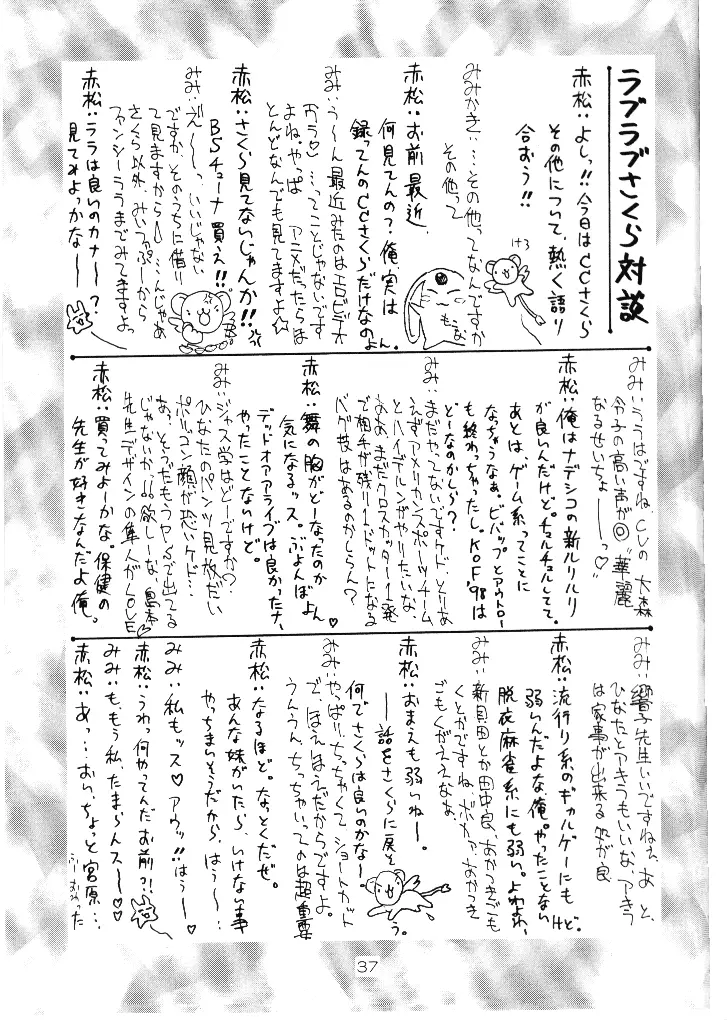 ラブラブさくら対談
赤松:よしっ!!今日はCCさくら
その他について、熱く語り
合おう!!
みみかき:…その他ってなんですか
その他って
赤松:お前最近、
何見てんの?俺、実は
録ってんのCCさくらだけなのよん。
みみ:う〜ん最近みたのはエロビデオ
よね。やっぱ アニメだったらほ
とんどなんでも見てますよ☆
赤松:さくら見てないじゃんか!!
BSチューナ買え!!
みみ:え〜〜っ、いいじゃない
ですか、そのうちに借り
て見ますから
さくら以外、みいつぷーから
ファンシーララまでみてますよ
赤松:ララは良いのカナ〜?
見てみよっかな〜
けろ
もこな
みみ:ララはですね、CVの大森
令子の高い声が◎"華麗
なるせいちょーーっ♡"
赤松:俺はナデシコの新ルリルリ
が良いんだけど。チュルチュルしてて。
あとは、ゲーム系ってことに
なっちゃうなぁ。ビバップとアウトロー
も終わっちゃったし。KOF98は
どーなのかしら?
みみ:まだやってないですケド、とりあ
えずアメリカンスポーツチーム
とハイデルンがやりたいな、
なお、まだクロスカッター1発
で相手が残り1ドットになる
バグ技はあるのかしらん?
赤松:舞の胸がどーなったのか
気になるッス。ぶよんぼよん♡
やったことないけど。
デッドオアアライブは良かったナ、
みみ:ジャス学はどーですか?
ひなたのパンツ見放だい
ポリゴン顔が恐いケド…
あっ、そうだもうPSで出てる
じゃないか!欲しーな、島本
先生デザインの隼人がLOVE♡
赤松:買ってみよーかな。保健の
先生が好きなんだよ俺。
みみ:響子先生いいですねぇ、あと、
ひなたとアキラもいいな、アキラ
は家事が出来る所が良
赤松:流行り系のギャルゲーにも
弱いんだよな、俺。やったことないけど。
脱衣麻雀系にも弱い。よわよわ、
みみ:新貝田とか田中良、あかつきごも
くとかですね、ボカァ、あかつき
ごもくがええなぁ
赤松:おまえも弱いねー。
——話をさくらに戻そう。
何でさくらは良いのかな〜
みみ:やっぱ、ちっちゃくてショートカット
で、ほえほえだからですよ。
うんうん、ちっちゃいってのは超重要
赤松:なるほど。なっとくだぜ。
あんな妹がいたら、いけない事
やっちまいそうだから、はぅ〜…
みみ:私もッス♡アウッ!!はぅ〜
赤松:うわっ何やってんだお前?!
みみ:ももう私、たまらんス〜♡♡
赤松:あっ…おい、ちょっと宮原…
37